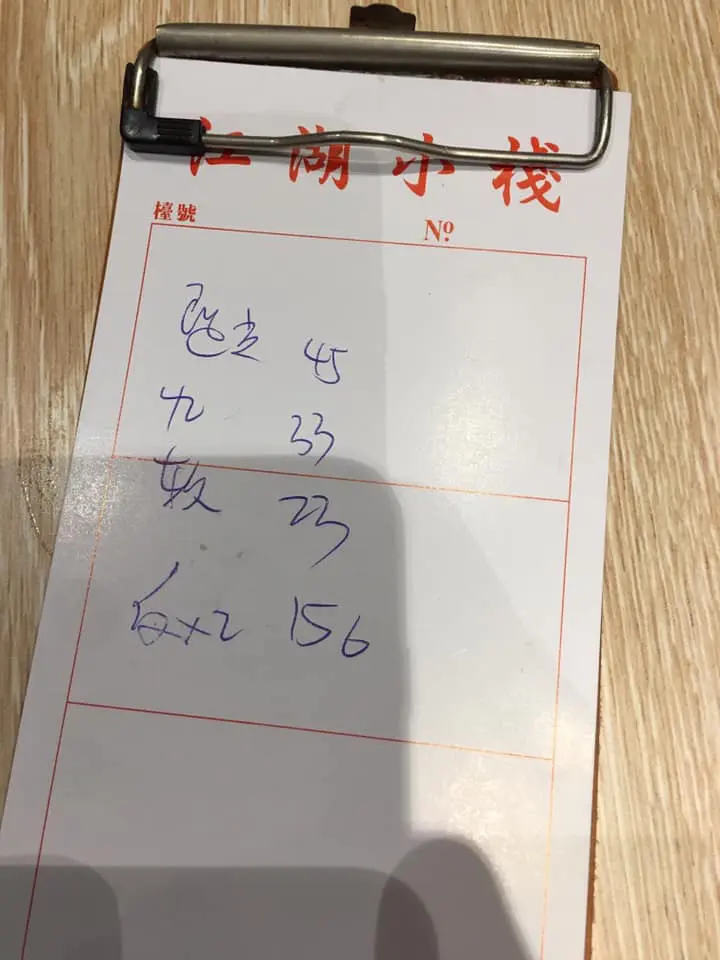 江湖小棧
檯號 Nº
45
九 33
23
x2 156